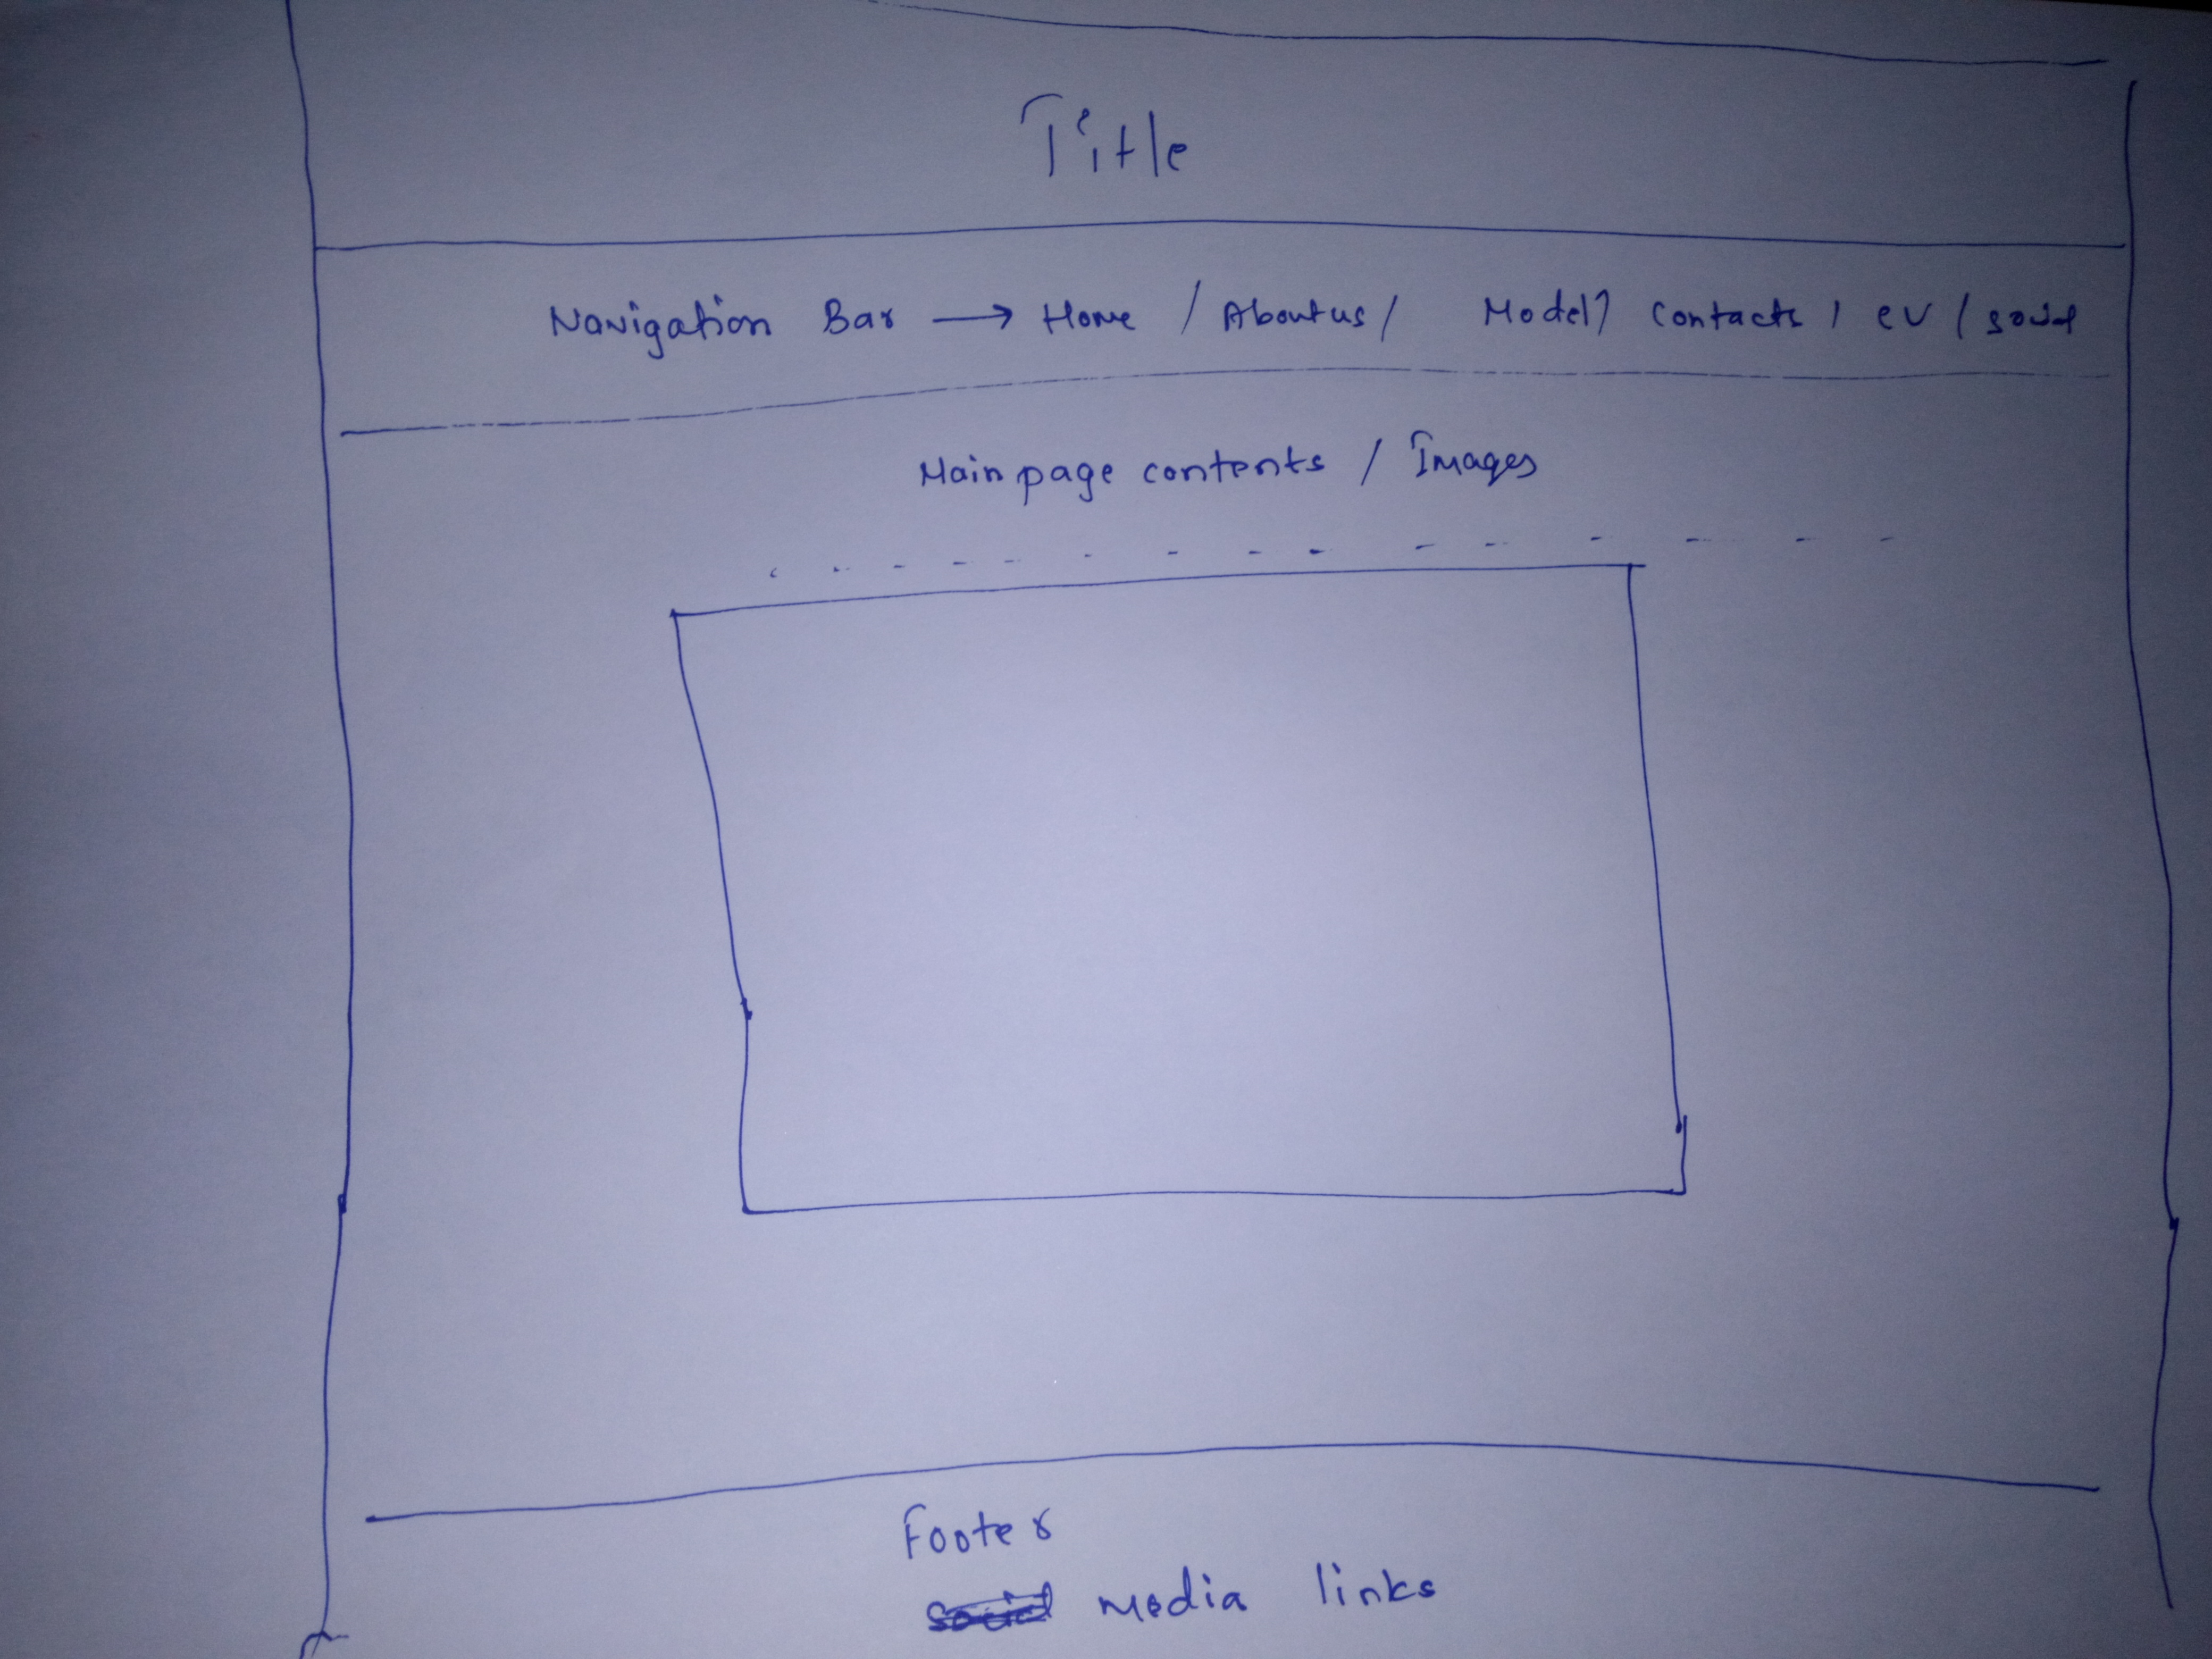 Title
Navigation Bar → Home / About us / Model / Contacts / ev / social
Main page contents / Images
Footer
media links